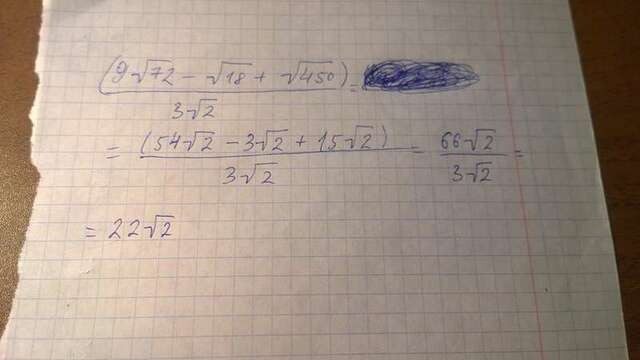 (9√72 - √18 + √450) / 3√2 =
= (54√2 - 3√2 + 15√2) / 3√2 = 66√2 / 3√2 =
= 22√2